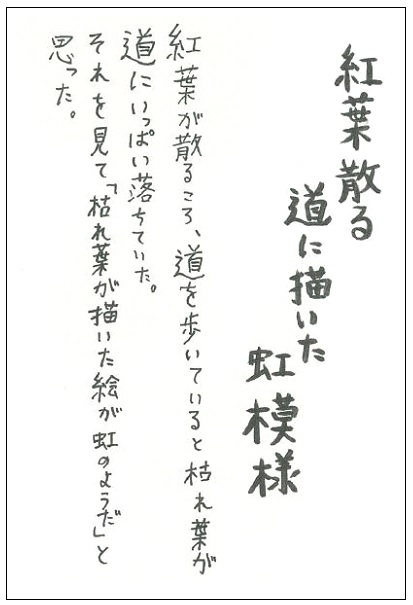 紅葉散る
道に描いた
虹模様
紅葉が散るころ、道を歩いていると枯れ葉が
道にいっぱい落ちていた。
それを見て「枯れ葉が描いた絵が虹のようだ」と
思った。